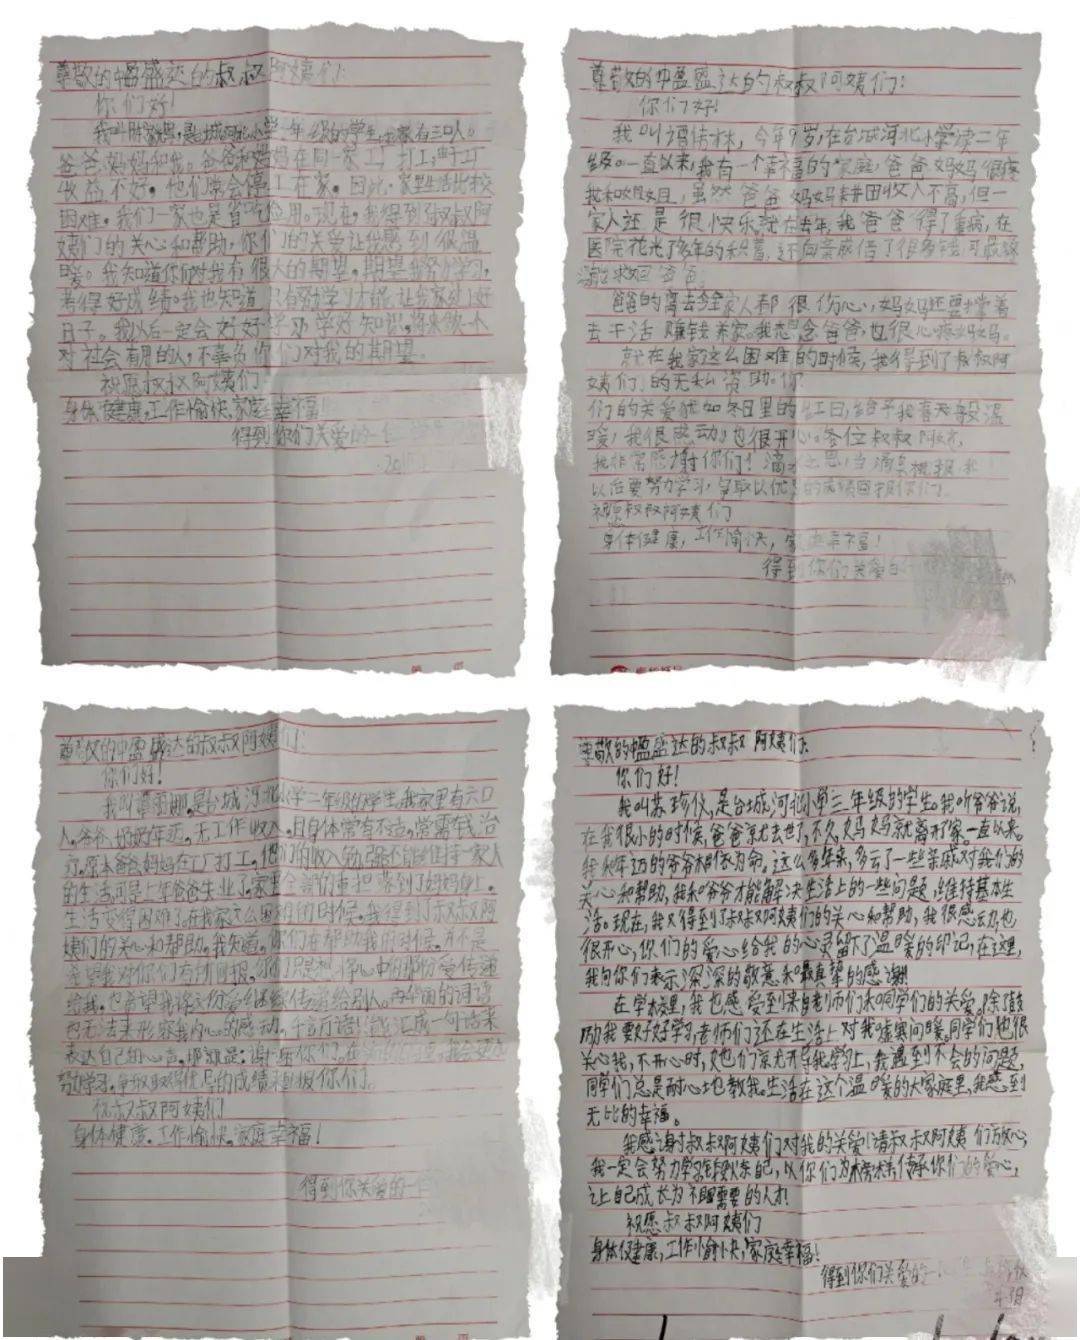 尊敬的中盈盛达的叔叔阿姨们:
你们好!
我叫,是台城河北小学二年级的学生,我家有三口人。
爸爸、妈妈和我。爸爸和妈妈在同一家工厂打工,由于工厂
收益不好。他们常会停工在家。因此,家里生活比较
困难。我们一家也是省吃俭用。现在,我得到了叔叔阿
姨们的关心和帮助,你们的关爱让我感到很温
暖。我知道你们对我有很大的期望。期望我努力学习,
考得好成绩。我也知道只有努力学习才能让我家过上好
日子。我以后一定会好好学习学好知识,将来做一个
对社会有用的人,不辜负你们对我的期望。
祝愿叔叔阿姨们
身体健康,工作愉快,家庭幸福!
得到你们关爱的一
尊敬的中盈盛达的叔叔阿姨们:
你们好!
我叫谭倩林,今年9岁,在台城河北小学读二年
级。一直以来,我有一个幸福的家庭,爸爸妈妈很疼
我和姐姐,虽然爸爸妈妈耕田收入不高,但一
家人还是很快乐。就在去年,我爸爸得了重病,在
医院花光了多年的积蓄,还向亲戚借了很多钱,可最终
没救回爸爸。
爸爸的离去令全家人都很伤心,妈妈还要撑着
去干活赚钱养家。我想念爸爸,也很心疼妈妈。
就在我家这么困难的时候,我得到了叔叔阿
姨们的无私资助。你
们的关爱犹如冬日里的红日,给予我春天般温
暖,我很感动,也很开心。各位叔叔阿姨,
我非常感谢你们!滴水之恩,当涌泉相报。我
以后要努力学习,争取以优异的成绩回报你们。
祝愿叔叔阿姨们
身体健康,工作愉快,家庭幸福!
得到你们关爱的
尊敬的中盈盛达的叔叔阿姨们:
你们好!
我叫谭雨娜,是台城河北小学二年级的学生。我家里有六口
人。爷爷、奶奶年迈。无工作收入。且身体常有不适。常需花钱治
疗。原本爸爸妈妈在工厂打工。他们的收入勉强才能维持一家人
的生活。可是上年爸爸失业了。家里全部的重担落到了妈妈身上。
生活变得困难了。在我家这么困难的时候。我得到了叔叔阿
姨们的关心和帮助。我知道。你们在帮助我的时候。并不是
希望我对你们有所回报。你们只是把你心中的那份爱传递
给我。也希望我将这份爱继续传递给别人。再华丽的词语
也无法来形容我内心的感动。千言万语只能汇成一句话来
表达自己的心声。那就是:谢谢你们。在以后的日子里,我会更加
努力学习。争取取得优异的成绩来回报你们。
祝叔叔阿姨们
身体健康。工作愉快。家庭幸福!
得到你关爱的一
尊敬的中盈盛达的叔叔阿姨们:
你们好!
我叫苏珍仪,是台城河北小学三年级的学生。我听爷爷说,
在我很小的时候,爸爸就去世了,不久,妈妈就离开了家。一直以来,
我和年迈的爷爷相依为命。这么多年来,多亏了一些亲戚对我们的
关心和帮助,我和爷爷才能解决生活上的一些问题,维持基本生
活。现在,我又得到了叔叔阿姨们的关心和帮助,我很感动,也
很开心,你们的爱心给我的心灵留下了温暖的印记,在这里,
我向你们表示深深的敬意和最真挚的感谢!
在学校里,我也感受到来自老师们和同学们的关爱。除了鼓
励我要好好学习,老师们还在生活上对我嘘寒问暖。同学们也很
关心我,不开心时,她们就开导我。学习上,我遇到不会的问题,
同学们总是耐心地教我。生活在这个温暖的大家庭里,我感到
无比的幸福。
我感谢叔叔阿姨们对我的关爱!请叔叔阿姨们放心,
我一定会努力学习锻炼自己,以你们为榜样,传承你们的爱心,
让自己成长为祖国需要的人才!
祝愿叔叔阿姨们
身体健康,工作愉快,家庭幸福!
得到你们关爱的一